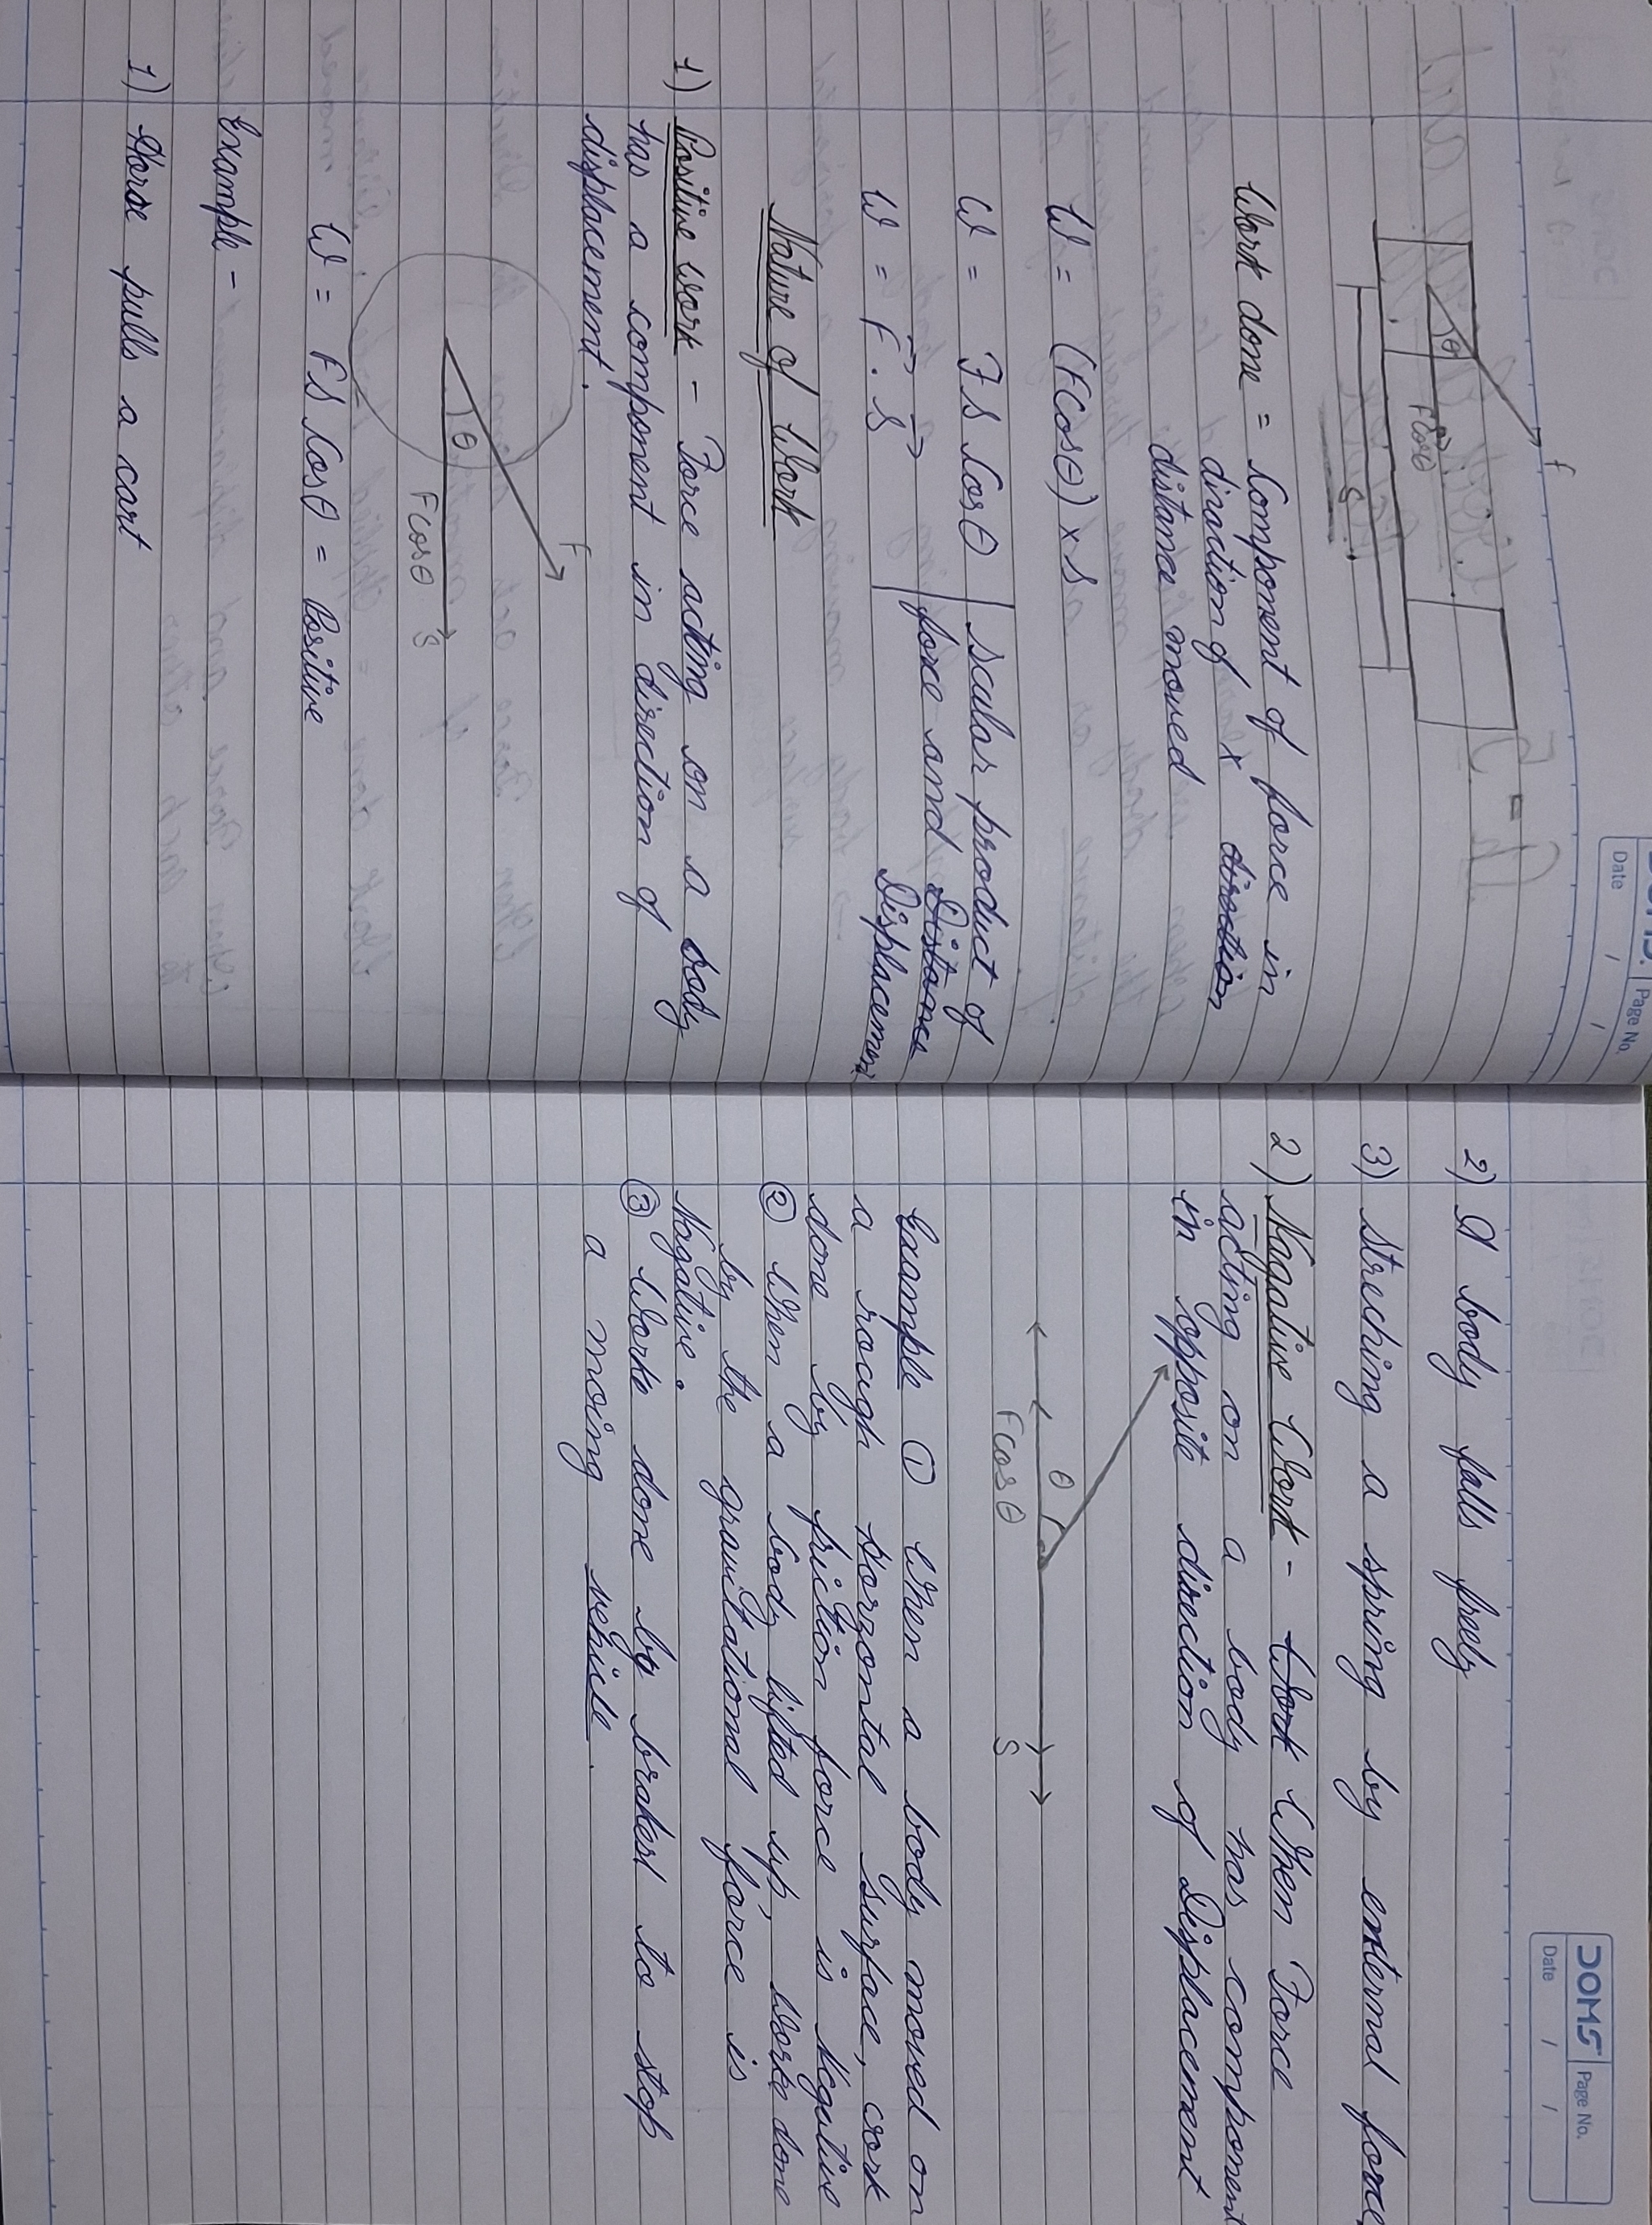 DOMS. Page No.
Date / /
F
θ
Fcosθ
S
Work done = Component of force in
diraction of x direction
distance moved
W = (Fcosθ) x s
W = FS Cosθ | scular product of
W = F→ . S→ | force and Distance
Displacement
Nature of Work
1) Positive work - Force acting on a body
has a component in direction of
displacement.
F
θ
Fcosθ S
W = FS Cosθ = Positive
Example -
1) Horse pulls a cart
DOMS Page No.
Date / /
2) A body falls freely
3) Streching a spring by external force
2) Nagative Work - Work When Force
acting on a body has component
in opposite direction of Displacement
θ
Fcosθ S
Example ① When a body moved on
a rough horzontal surface, work
done by friction force is Negative
② When a body lifted up, Worke done
by the gravitational force is
Nagative.
③ Worke done by brakes to stop
a moing vehicle.